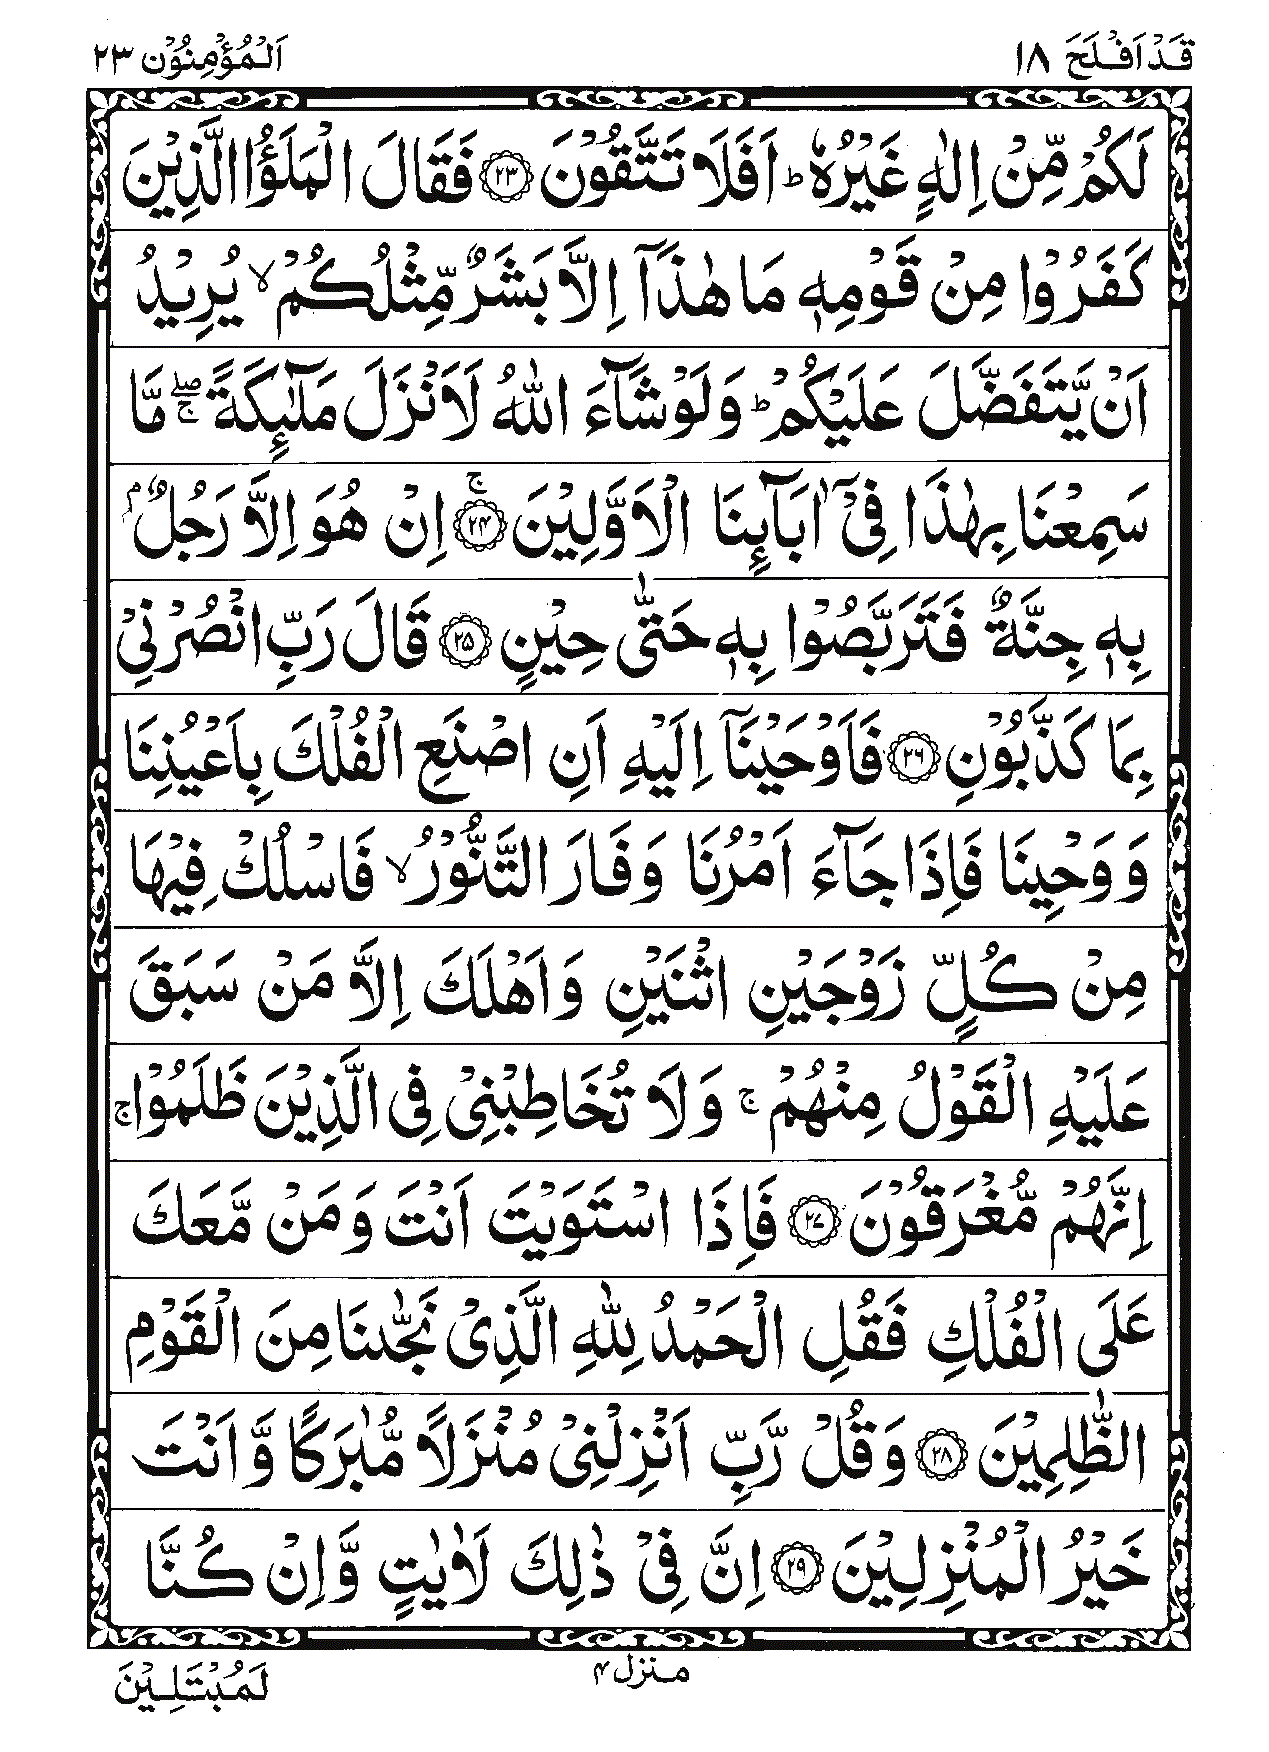 قَدْ اَفْلَحَ ١٨
اَلْمُؤْمِنُوْن ٢٣
لَكُمْ مِّنْ اِلٰهٍ غَيْرُهٗ ؕ اَفَلَا تَتَّقُوْنَ ۝۲۳ فَقَالَ الْمَلَؤُا الَّذِيْنَ
كَفَرُوْا مِنْ قَوْمِهٖ مَا هٰذَاۤ اِلَّا بَشَرٌ مِّثْلُكُمْ ۙ يُرِيْدُ
اَنْ يَّتَفَضَّلَ عَلَيْكُمْ ؕ وَلَوْ شَآءَ اللّٰهُ لَاَنْزَلَ مَلٰٓئِكَةً ۖۚ مَّا
سَمِعْنَا بِهٰذَا فِيْۤ اٰبَآئِنَا الْاَوَّلِيْنَ ۝ۚ۲۴ اِنْ هُوَ اِلَّا رَجُلٌۢ
بِهٖ جِنَّةٌ فَتَرَبَّصُوْا بِهٖ حَتّٰى حِيْنٍ ۝۲۵ قَالَ رَبِّ انْصُرْنِيْ
بِمَا كَذَّبُوْنِ ۝۲۶ فَاَوْحَيْنَاۤ اِلَيْهِ اَنِ اصْنَعِ الْفُلْكَ بِاَعْيُنِنَا
وَ وَحْيِنَا فَاِذَا جَآءَ اَمْرُنَا وَفَارَ التَّنُّوْرُ ۙ فَاسْلُكْ فِيْهَا
مِنْ كُلٍّ زَوْجَيْنِ اثْنَيْنِ وَاَهْلَكَ اِلَّا مَنْ سَبَقَ
عَلَيْهِ الْقَوْلُ مِنْهُمْ ۚ وَلَا تُخَاطِبْنِيْ فِي الَّذِيْنَ ظَلَمُوْا ۚ
اِنَّهُمْ مُّغْرَقُوْنَ ۝۲۷ فَاِذَا اسْتَوَيْتَ اَنْتَ وَمَنْ مَّعَكَ
عَلَى الْفُلْكِ فَقُلِ الْحَمْدُ لِلّٰهِ الَّذِيْ نَجّٰىنَا مِنَ الْقَوْمِ
الظّٰلِمِيْنَ ۝۲۸ وَقُلْ رَّبِّ اَنْزِلْنِيْ مُنْزَلًا مُّبٰرَكًا وَّاَنْتَ
خَيْرُ الْمُنْزِلِيْنَ ۝۲۹ اِنَّ فِيْ ذٰلِكَ لَاٰيٰتٍ وَّاِنْ كُنَّا
منزل ۴
لَمُبْتَلِيْنَ